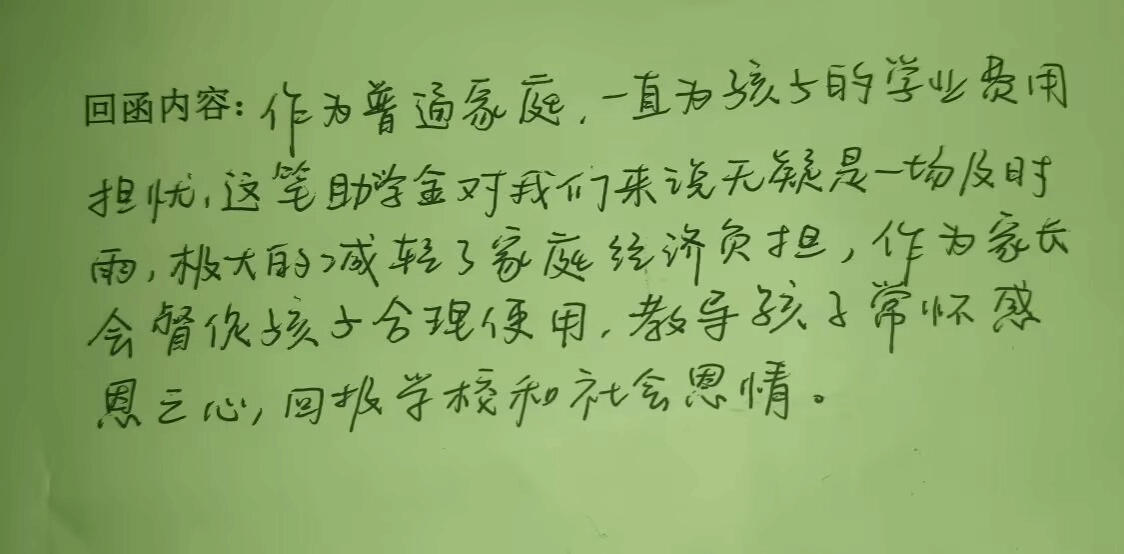 回函内容：作为普通家庭，一直为孩子的学业费用
担忧，这笔助学金对我们来说无疑是一场及时
雨，极大的减轻了家庭经济负担，作为家长
会督促孩子合理使用，教导孩子常怀感
恩之心，回报学校和社会恩情。